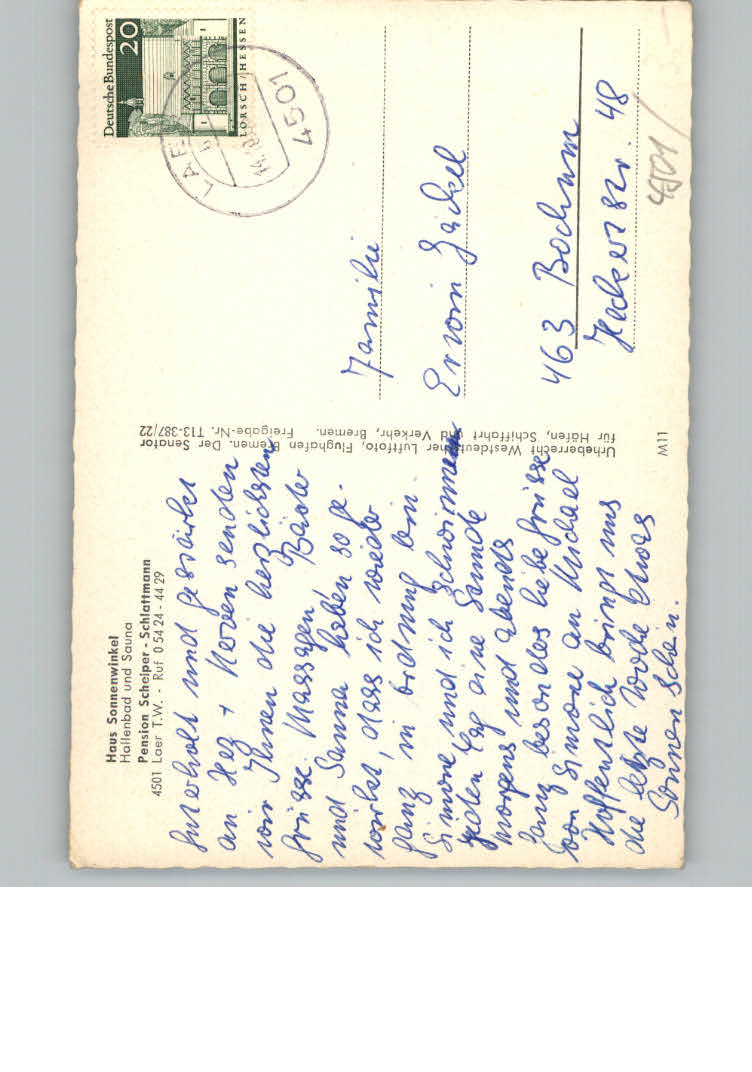 Haus Sonnenwinkel
Hallenbad und Sauna
Pension Scheiper - Schlattmann
4501 Laer T.W. - Ruf 0 54 24 - 44 29
Guterholt und gestärkt
an Herz + Nerven senden
wir Ihnen die herzlichsten
Grüsse. Massagen, Bäder
und Sauna haben so ge-
wirkt, dass ich wieder
ganz in Ordnung bin.
Simone und ich schwimmen
jeden Tag eine Stunde
morgens und abends
Ganz besonders liebe Grüsse
von Simone an Michael
Hoffentlich bringt uns
die letzte Woche etwas
Sonnenschein.
Urheberrecht Westdeutscher Luftfoto, Flughafen Bremen. Der Senator
für Häfen, Schiffahrt und Verkehr, Bremen. Freigabe-Nr. T13-387/22
M11
Deutsche Bundespost
20
LORSCH/HESSEN
LAE
4501
Familie
Erwin Jäckel
463 Bochum
48
4501